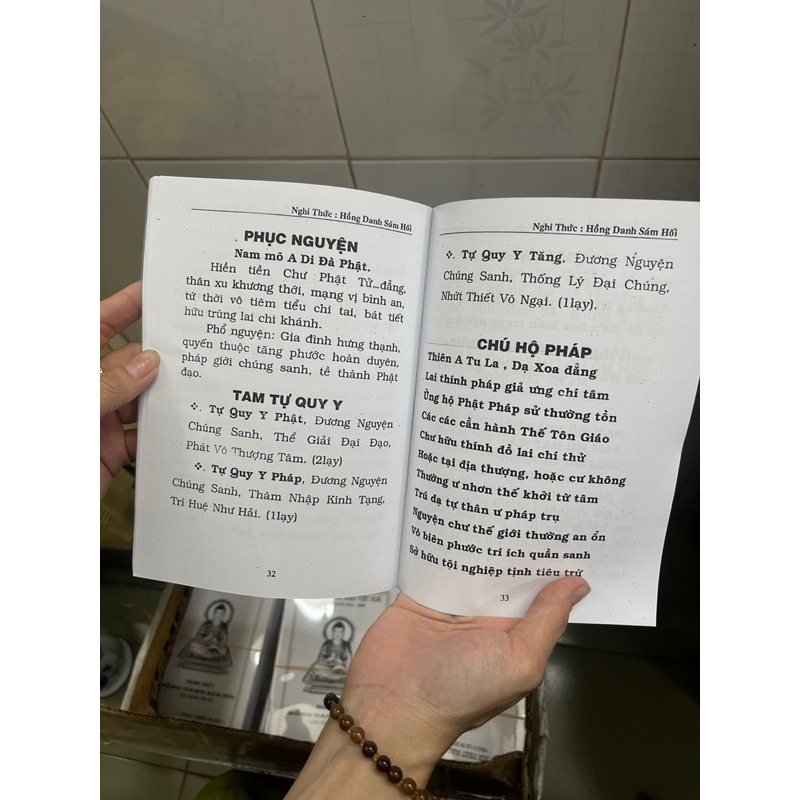 Nghi Thức : Hồng Danh Sám Hối
PHỤC NGUYỆN
Nam mô A Di Đà Phật.
Hiền tiền Chư Phật Tử...đẳng,
thân xu khương thới, mạng vị bình an,
tứ thời vô tiêm tiểu chi tai, bát tiết
hữu trùng lai chi khánh.
Phổ nguyện: Gia đình hưng thạnh,
quyến thuộc tăng phước hoàn duyên,
pháp giới chúng sanh, tề thành Phật
đạo.
TAM TỰ QUY Y
❖. Tự Quy Y Phật, Đương Nguyện
Chúng Sanh, Thể Giải Đại Đạo,
Phát Vô Thượng Tâm. (2lạy)
❖. Tự Quy Y Pháp, Đương Nguyện
Chúng Sanh, Thám Nhập Kinh Tạng,
Trí Huệ Như Hải. (1lạy)
32
Nghi Thức : Hồng Danh Sám Hối
❖. Tự Quy Y Tăng, Đương Nguyện
Chúng Sanh, Thống Lý Đại Chúng,
Nhứt Thiết Vô Ngại. (1lạy).
CHÚ HỘ PHÁP
Thiên A Tu La , Dạ Xoa đẳng
Lai thính pháp giả ưng chí tâm
Ủng hộ Phật Pháp sử thường tồn
Các các cần hành Thế Tôn Giáo
Chư hữu thính đồ lai chí thử
Hoặc tại địa thượng, hoặc cư không
Thường ư nhơn thế khởi từ tâm
Trú dạ tự thân ư pháp trụ
Nguyện chư thế giới thường an ổn
Vô biên phước trí ích quần sanh
Sở hữu tội nghiệp tịnh tiêu trừ
33